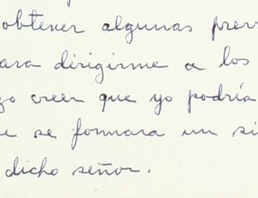 obtener algunas
dirigirme a los
creer que yo podría
se formara un
dicho señor.